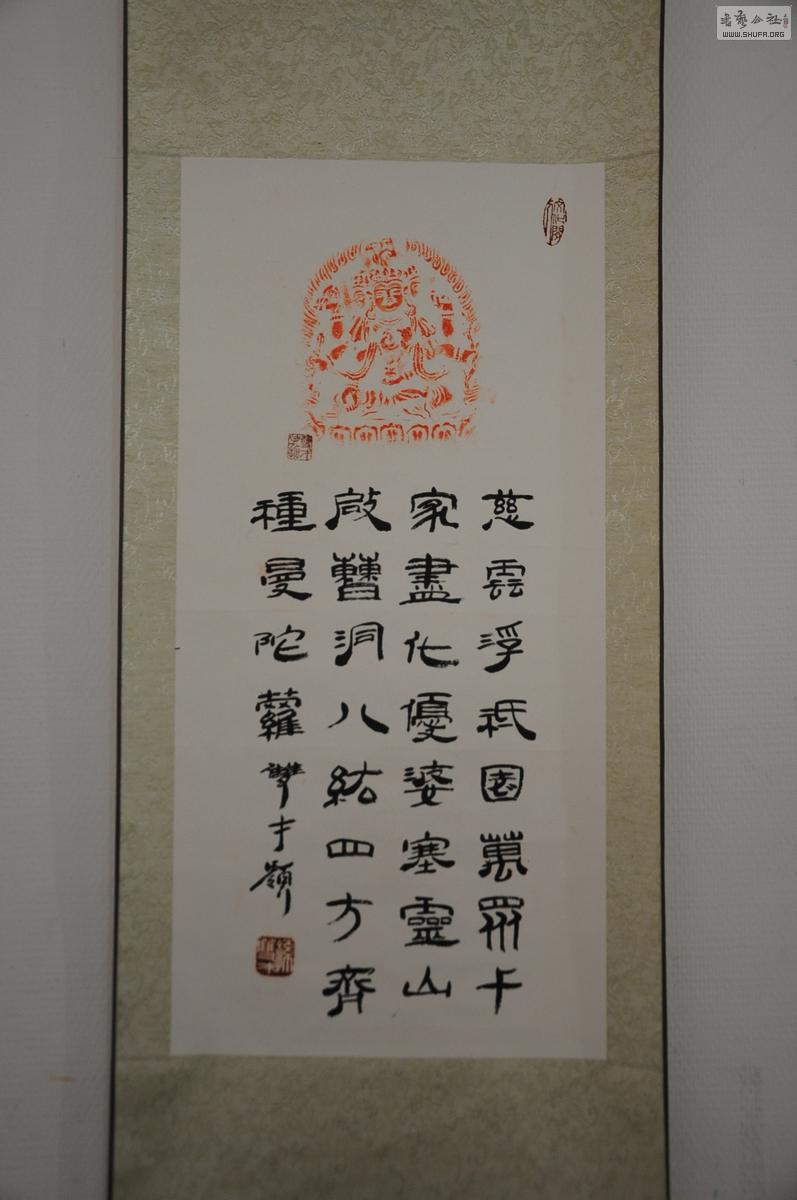 書藝公社
WWW.SHUFA.ORG
慈雲浮祇園萬眾千
家盡化優婆塞靈山
啟曹洞八紘四方齊
種曼陀蘿雙才